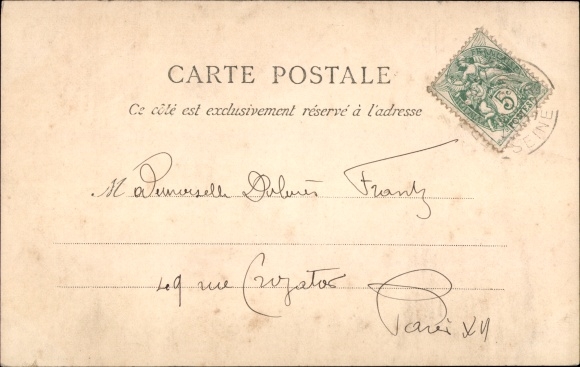 CARTE POSTALE
Ce côté est exclusivement réservé à l'adresse
5
SEINE
Mademoiselle Dolorès Frantz
49 rue Crozatier
Paris XII